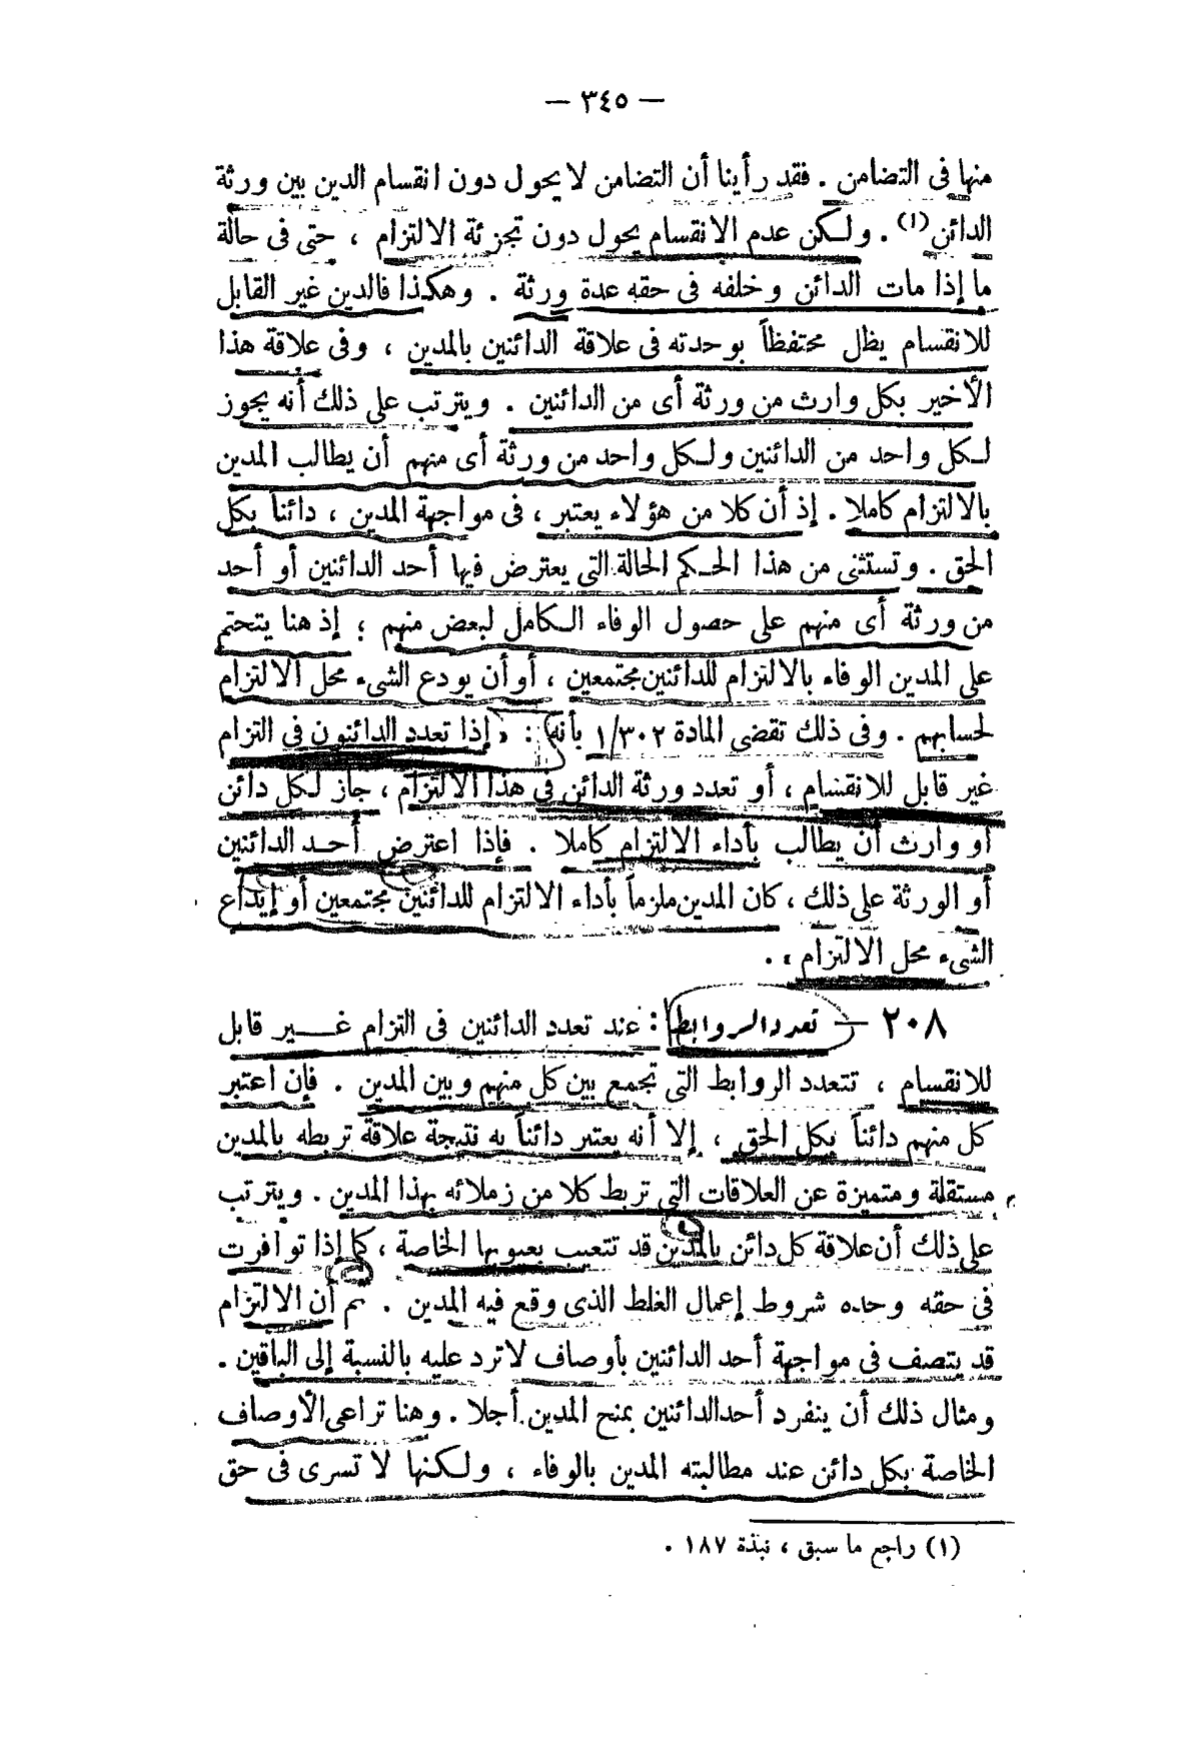 — ٣٤٥ —
منها فى التضامن . فقد رأينا أن التضامن لا يحول دون انقسام الدين بين ورثة
الدائن (١) . ولكن عدم الانقسام يحول دون تجزئة الالتزام ، حتى فى حالة
ما إذا مات الدائن وخلفه فى حقه عدة ورثة . وهكذا فالدين غير القابل
للانقسام يظل محتفظاً بوحدته فى علاقة الدائنين بالمدين ، وفى علاقة هذا
الأخير بكل وارث من ورثة أى من الدائنين . ويترتب على ذلك أنه يجوز
لكل واحد من الدائنين ولكل واحد من ورثة أى منهم أن يطالب المدين
بالالتزام كاملا . إذ أن كلا من هؤلاء يعتبر ، فى مواجهة المدين ، دائناً بكل
الحق . وتستثنى من هذا الحكم الحالة التى يعترض فيها أحد الدائنين أو أحد
من ورثة أى منهم على حصول الوفاء الكامل لبعض منهم ؛ إذ هنا يتحتم
على المدين الوفاء بالالتزام للدائنين مجتمعين ، أو أن يودع الشىء محل الالتزام
لحسابهم . وفى ذلك تقضى المادة ١/٣٠٢ بأنه : « إذا تعدد الدائنون فى التزام
غير قابل للانقسام ، أو تعدد ورثة الدائن فى هذا الالتزام ، جاز لكل دائن
أو وارث أن يطالب بأداء الالتزام كاملا . فإذا اعترض أحد الدائنين
أو الورثة على ذلك ، كان المدين ملزماً بأداء الالتزام للدائنين مجتمعين أو إيداع
الشىء محل الالتزام » .
٢٠٨ — تعدد الروابط : عند تعدد الدائنين فى التزام غير قابل
للانقسام ، تتعدد الروابط التى تجمع بين كل منهم وبين المدين . فإن اعتبر
كل منهم دائناً بكل الحق ، إلا أنه يعتبر دائناً به نتيجة علاقة تربطه بالمدين
مستقلة ومتميزة عن العلاقات التى تربط كلا من زملائه بهذا المدين . ويترتب
على ذلك أن علاقة كل دائن بالمدين قد تتعيب بعيوبها الخاصة ، كما إذا توافرت
فى حقه وحده شروط إعمال الغلط الذى وقع فيه المدين . ثم أن الالتزام
قد يتصف فى مواجهة أحد الدائنين بأوصاف لا ترد عليه بالنسبة إلى الباقين .
ومثال ذلك أن ينفرد أحد الدائنين بمنح المدين أجلا . وهنا تراعى الأوصاف
الخاصة بكل دائن عند مطالبته المدين بالوفاء ، ولكنها لا تسرى فى حق
(١) راجع ما سبق ، نبذة ١٨٧ .